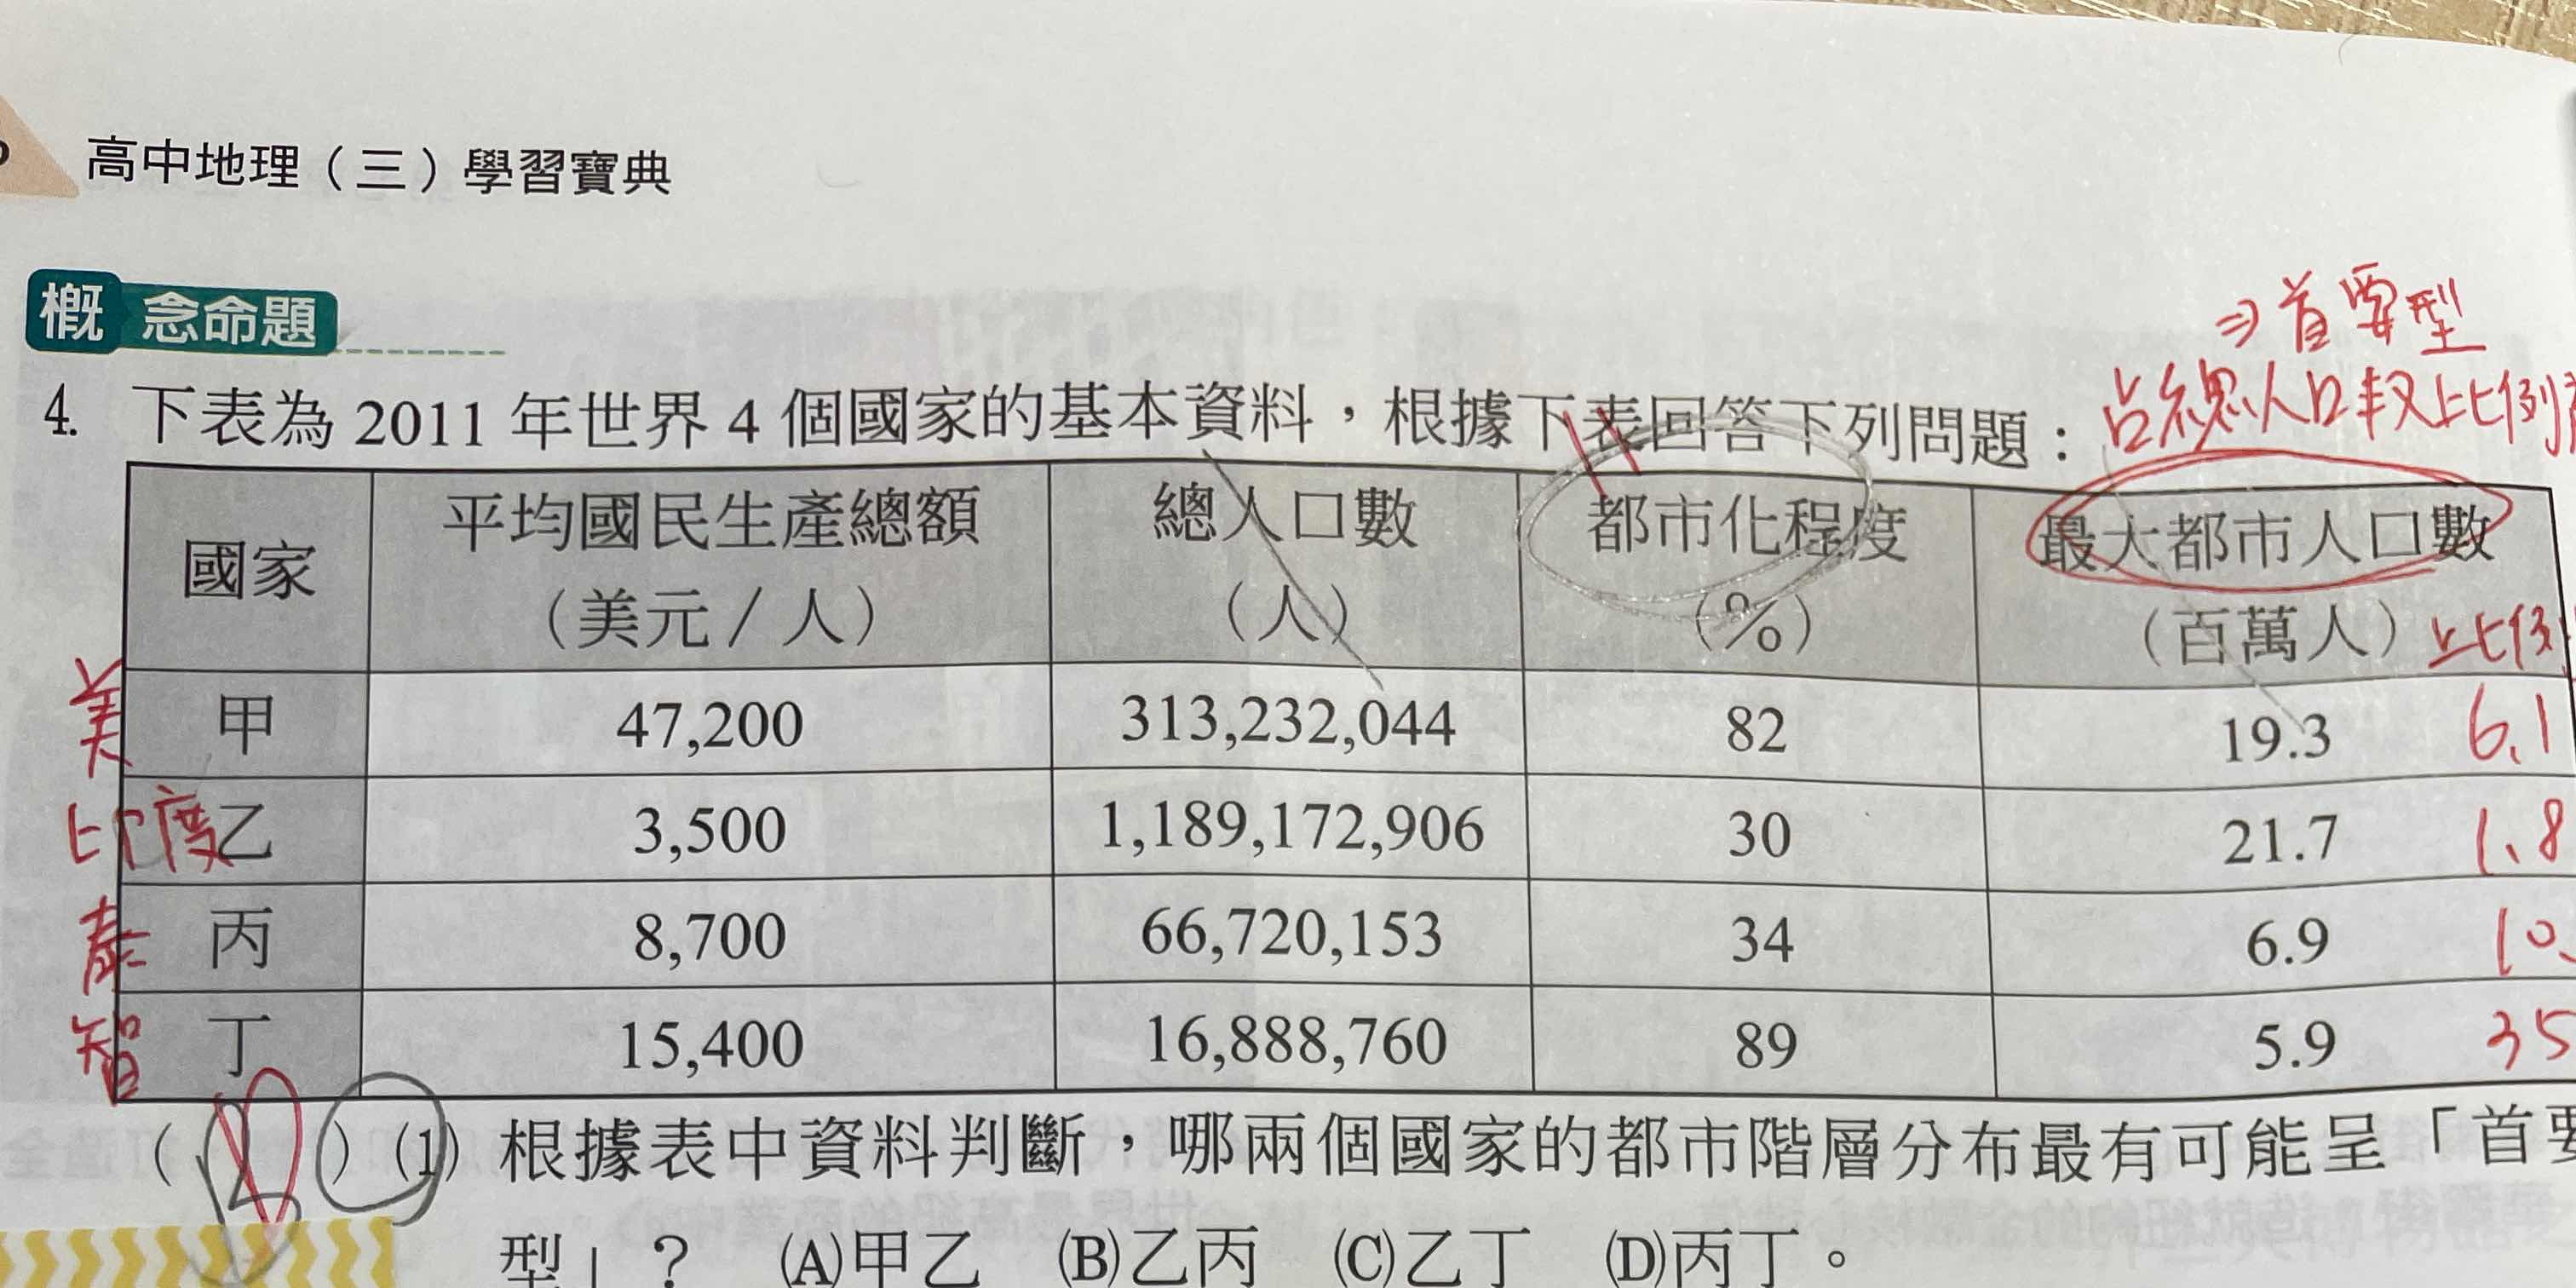 高中地理（三）學習寶典
概念命題
⇒首要型
占總人口比例
4. 下表為 2011 年世界 4 個國家的基本資料，根據下表回答下列問題：
國家 平均國民生產總額（美元 / 人） 總人口數（人） 都市化程度（%） 最大都市人口數（百萬人） 比例
美 甲 47,200 313,232,044 82 19.3 6.1
印度 乙 3,500 1,189,172,906 30 21.7 1.8
泰 丙 8,700 66,720,153 34 6.9 10.
智 丁 15,400 16,888,760 89 5.9 35
( ) (1) 根據表中資料判斷，哪兩個國家的都市階層分布最有可能呈「首要
型」？ (A)甲乙 (B)乙丙 (C)乙丁 (D)丙丁。